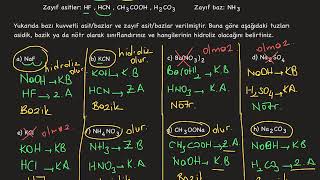 Zayıf asitler: HF, HCN, CH₃COOH, H₂CO₃ Zayıf baz: NH₃
Yukarıda bazı kuvvetli asit/bazlar ve zayıf asit/bazlar verilmiştir. Buna göre aşağıdaki tuzları
asidik, bazik ya da nötr olarak sınıflandırınız ve hangilerinin hidroliz olacağını belirtiniz.
a) NaF
hidroliz olur.
NaOH → K.B
HF → Z.A
Bazik
b) KCN
hidroliz olur.
KOH → K.B
HCN → Z.A
Bazik
c) Ba(NO₃)₂
olmaz
Ba(OH)₂ → K.B
HNO₃ → K.A
Nötr.
olmaz
NaOH → K.B
H₂SO₄ → K.A
Nötr
e) KCl
olmaz
KOH → K.B
HCl → K.A
f) NH₄NO₃
olur.
NH₃ → Z.B
HNO₃ → K.A
g) CH₃COONa
olur.
CH₃COOH → Z.A
NaOH → K.B
h) Na₂CO₃
olur.
NaOH → K.B
H₂CO₃ → Z.A